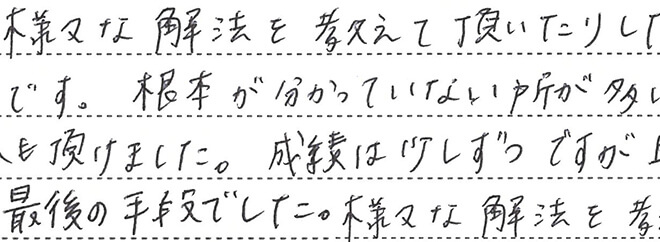 様々な解法を教えて頂いたりした
です。根本が分かっていない所が多い
も頂けました。成績は少しずつですが上
最後の手段でした。様々な解法を教